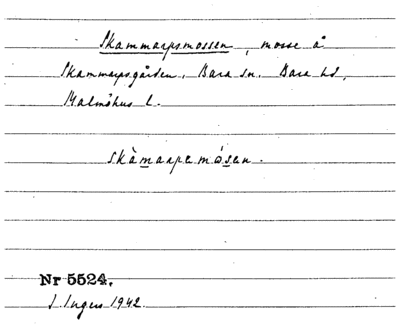 Skammarpsmossen, mosse å
Skammarpsgården, Bara sn. Bara hd,
Malmöhus l.
skàmarpemósen.
Nr 5524.
I. Ingers 1942.